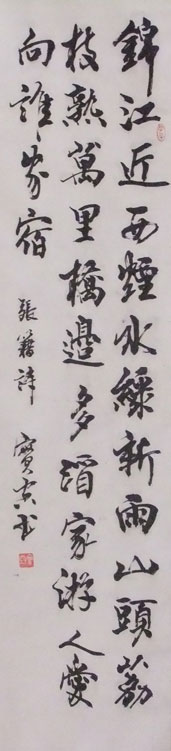 錦江近西煙水綠新雨山頭荔
枝熟萬里橋邊多酒家游人愛
向誰家宿
張籍詩 寶書